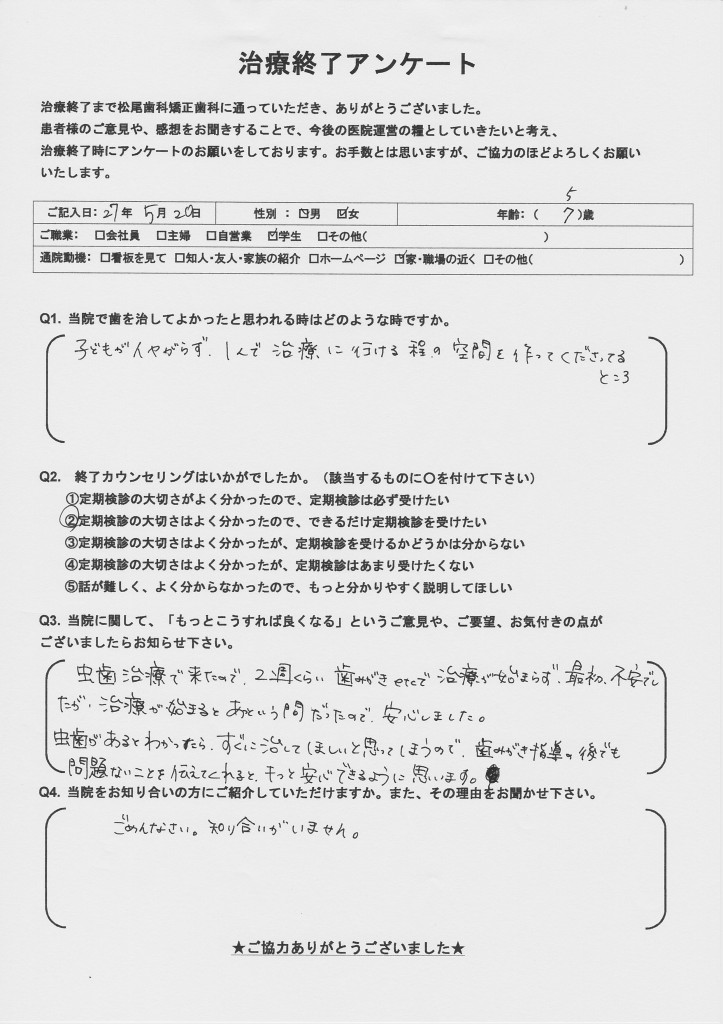 治療終了アンケート
治療終了まで松尾歯科矯正歯科に通っていただき、ありがとうございました。
患者様のご意見や、感想をお聞きすることで、今後の医院運営の糧としていきたいと考え、
治療終了時にアンケートのお願いをしております。お手数とは思いますが、ご協力のほどよろしくお願い
いたします。
ご記入日：27年 5月 20日 性別 ： ☑男 ☑女 年齢：（ 5 7 ）歳
ご職業： □会社員 □主婦 □自営業 ☑学生 □その他（ ）
通院動機：□看板を見て □知人・友人・家族の紹介 □ホームページ ☑家・職場の近く □その他（ ）
Q1. 当院で歯を治してよかったと思われる時はどのような時ですか。
子どもがイヤがらず、1人で 治療に行ける程の空間を作ってくださってる
ところ
Q2. 終了カウンセリングはいかがでしたか。（該当するものに〇を付けて下さい）
①定期検診の大切さがよく分かったので、定期検診は必ず受けたい
②定期検診の大切さはよく分かったので、できるだけ定期検診を受けたい
③定期検診の大切さはよく分かったが、定期検診を受けるかどうかは分からない
④定期検診の大切さはよく分かったが、定期検診はあまり受けたくない
⑤話が難しく、よく分からなかったので、もっと分かりやすく説明してほしい
Q3. 当院に関して、「もっとこうすれば良くなる」というご意見や、ご要望、お気付きの点が
ございましたらお知らせ下さい。
虫歯治療で来たので、2週くらい 歯みがきetcで治療が始まらず、最初、不安でし
たが、治療が始まるとあっという間だったので、安心しました。
虫歯があるとわかったら、すぐに治してほしいと思ってしまうので、歯みがき指導の後でも
問題ないことを伝えてくれると、もっと安心できるように思います。
Q4. 当院をお知り合いの方にご紹介していただけますか。また、その理由をお聞かせ下さい。
ごめんなさい。知り合いがいません。
★ご協力ありがとうございました★